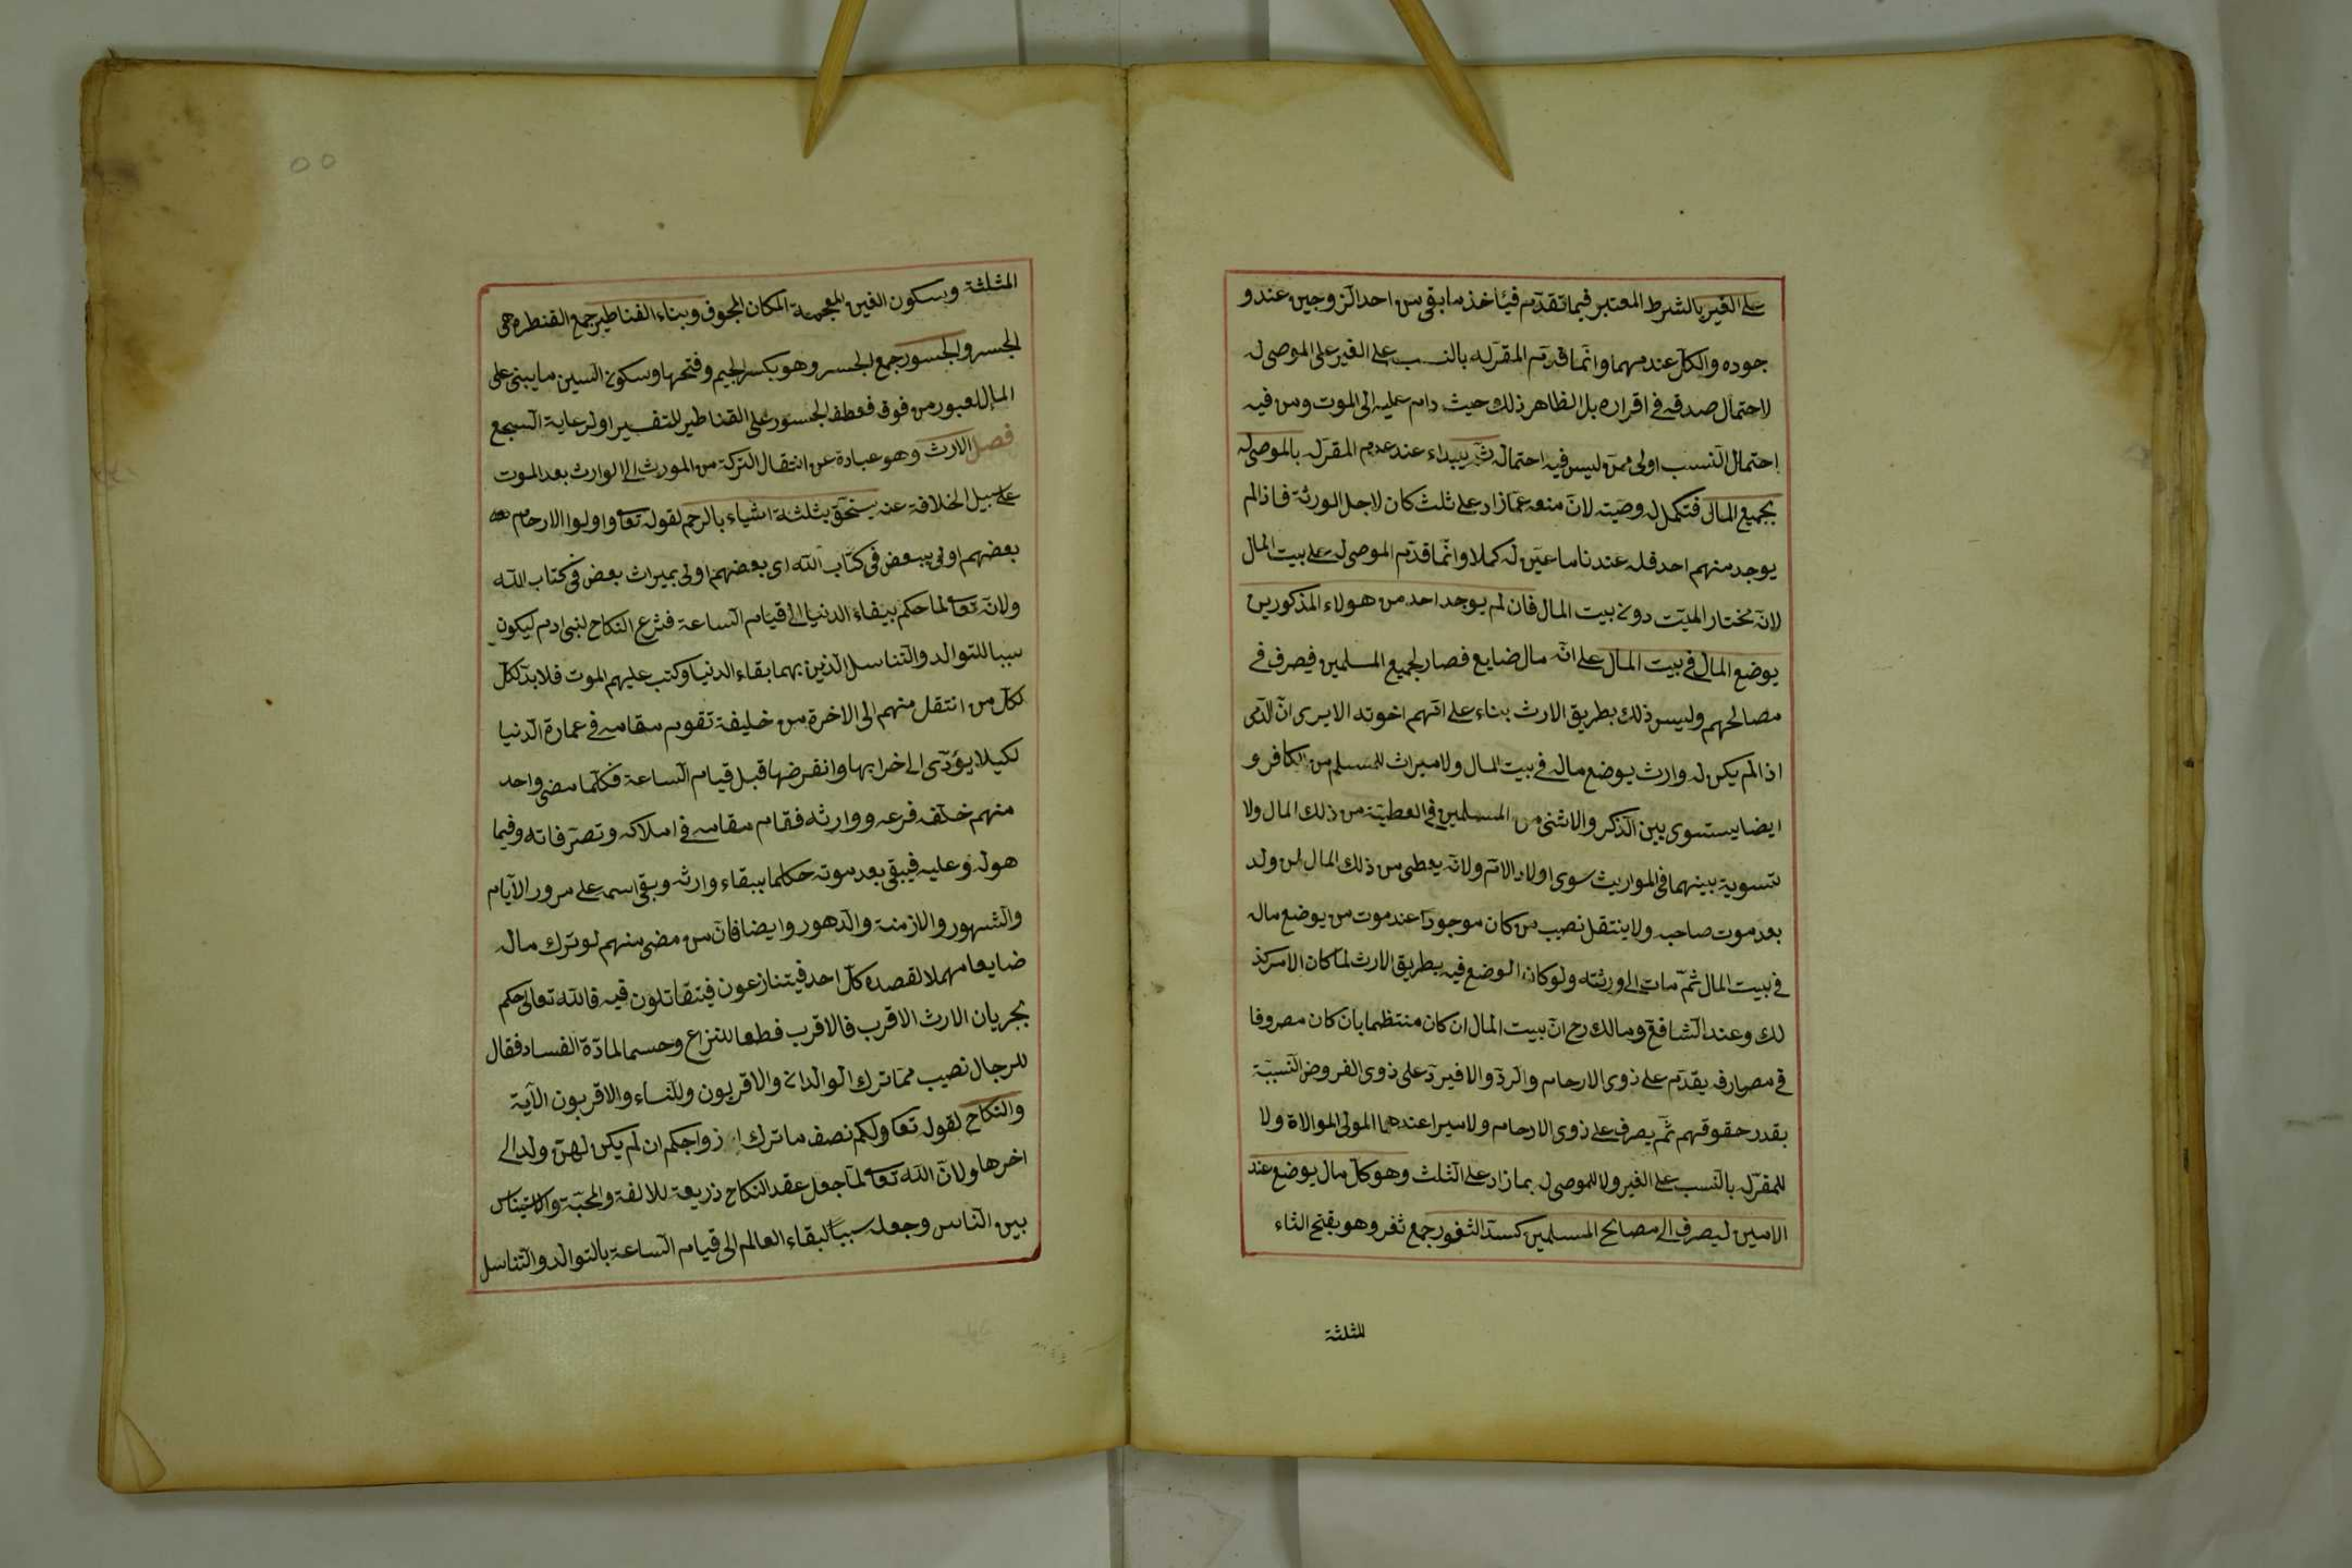 على الغير بالشرط المعتبر فيما تقدّم فيأخذ ما بقى من احد الزوجين عند و
جوده والكل عند مهما وانّما قدّم المقرّله بالنسب على الغير على الموصى له
لاحتمال صدقه فى اقراره بل الظاهر ذلك حيث دام عليه الى الموت ومن فيه
احتمال النسب اولى ممّن ليس فيه احتماله ثمّ يبداء عند عدم المقرّله بالموصى له
بجميع المال فتكمل له وصيّته لانّ منعه عمّا زاد على ثلث كان لاجل الورثة فاذا لم
يوجد منهم احد فله عندنا ما عيّن له كملا وانّما قدّم الموصى له على بيت المال
لانّه مختار الميّت دون بيت المال فان لم يوجد احد من هولاء المذكورين
يوضع المال فى بيت المال على انّه مال ضايع فصار لجميع المسلمين فيصرف فى
مصالحهم وليس ذلك بطريق الارث بناء على انّهم اخوته الا يرى انّ الذّمى
اذا لم يكن له وارث يوضع ماله فى بيت المال ولا ميراث للمسلم من الكافر و
ايضا يستوى بين الذّكر والانثى من المسلمين فى العطيّة من ذلك المال ولا
تسوية بينهما فى المواريث سوى اولاد الامّ ولانّه يعطى من ذلك المال لمن ولد
بعد موت صاحبه ولا ينتقل نصيب من كان موجودا عند موت من يوضع ماله
فى بيت المال ثمّ مات الى ورثته ولو كان الوضع فيه بطريق الارث لما كان الامر كذ
لك وعند الشافعى ومالك رح انّ بيت المال ان كان منتظما بان كان مصروفا
فى مصارفه يقدّم على ذوى الارحام والردّ والا فيردّ على ذوى الفروض النّسبيّة
بقدر حقوقهم ثمّ يصرف على ذوى الارحام ولا ميرا عندهما المولى الموالاة ولا
للمقرّله بالنّسب على الغير ولا للموصى له بما زاد على الثلث وهو كل مال يوضع عند
الامين ليصرف الى مصالح المسلمين كسدّ الثغور جمع ثغر وهو بفتح الثاء
للثلثة
المثلثة وبسكون الغين المعجمة المكان المجوف وبناء القناطير جمع القنطره هى
الجسر والجسور جمع الجسر وهو بكسر الجيم وفتحها وسكون السين ما يبنى على
المال لعبور من فوق فعطف الجسور على القناطير للتفسير او لرعاية السجع
فصل الارث وهو عبارة عن انتقال التركة من المورث الى الوارث بعد الموت
على سبيل الخلافة عنه يستحقّ بثلثة اشياء بالرحم لقوله تعا واولوا الارحام
بعضهم اولى ببعض فى كتاب الله اى بعضهم اولى بميراث بعض فى كتاب الله
ولانّه تعا لما حكم ببقاء الدنيا الى قيام الساعة فشرع النكاح لبنى ادم ليكون
سببا للتوالد والتّناسل الذين بهما بقاء الدنيا وكتب عليهم الموت فلا بدّ لكل
لكل من انتقل منهم الى الاخرة من خليفة تقوم مقامه فى عمارة الدّنيا
لكيلا يؤدّى الى خرابها وانفرضها قبل قيام الساعة فكلّما مضى واحد
منهم خلّف فرعه ووارثه فقام مقامه فى املاكه وتصرّفاته وفيما
هو له وعليه فيبقى بعد موته حكما ببقاء وارثه وبقى اسمه على مرور الايّام
والشهور والازمنة والدهور وايضا فانّ من مضى منهم لو ترك ماله
ضايعا مهملا لقصده كلّ احد فيتنازعون فيتقاتلون فيه فالله تعالى حكم
بجريان الارث الاقرب فالاقرب قطعا للنزاع وحسما لمادّة الفساد فقال
للرجال نصيب ممّا ترك الوالدان والاقربون وللنساء والاقربون الآية
والنكاح لقوله تعا ولكم نصف ما ترك ازواجكم ان لم يكن لهنّ ولد الى
اخرها ولانّ الله تعا لمّا جعل عقد النكاح ذريعة للالفة والمحبّة والاستيناس
بين النّاس وجعله سببًا لبقاء العالم الى قيام السّاعة بالتوالد والتّناسل